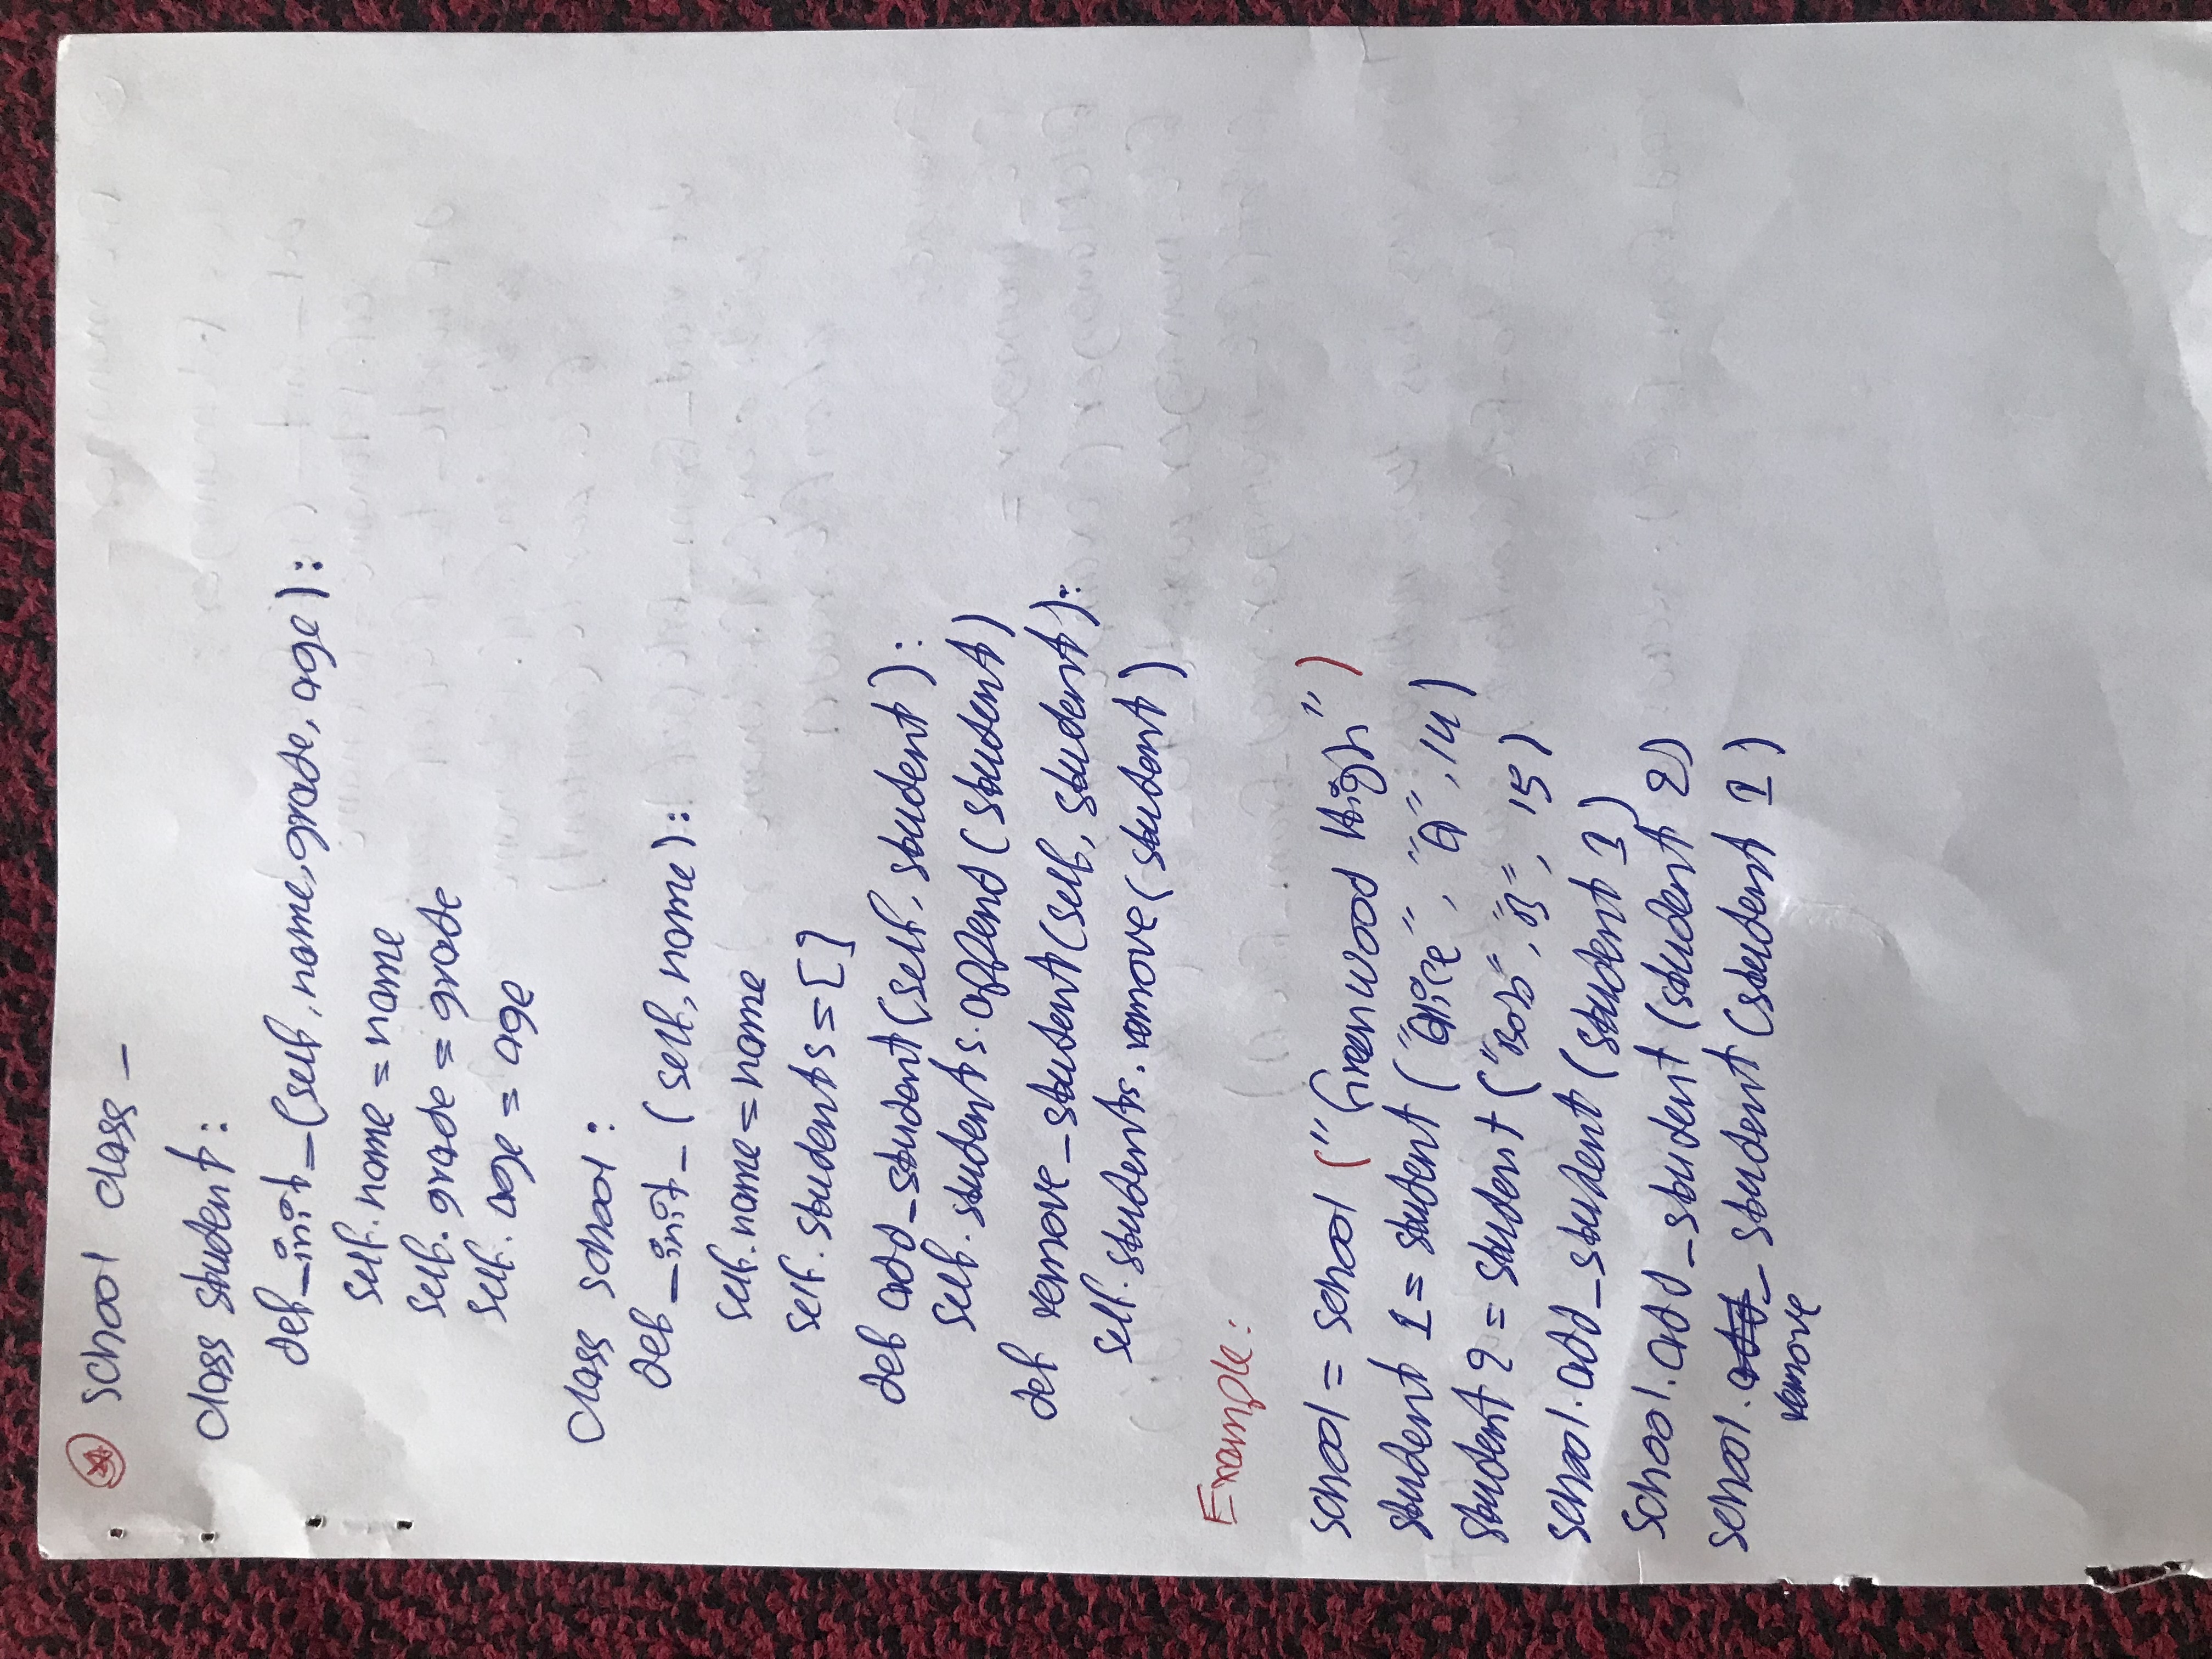 school class -
class student:
def_init_(self, name, grade, age):
self.name = name
self.grade = grade
self.age = age
class school:
def_init_(self, name):
self.name = name
self.students = []
def add_student(self, student):
self.students.append(student)
def remove_student(self, student):
self.students.remove(student)
Example:
school = school ("Greenwood High")
student 1 = student ("Alice", "A", 14)
student 2 = student ("Bob", "B", 15)
school.add_student (student 1)
school.add_student (student 2)
school.add_student (student 1)
remove